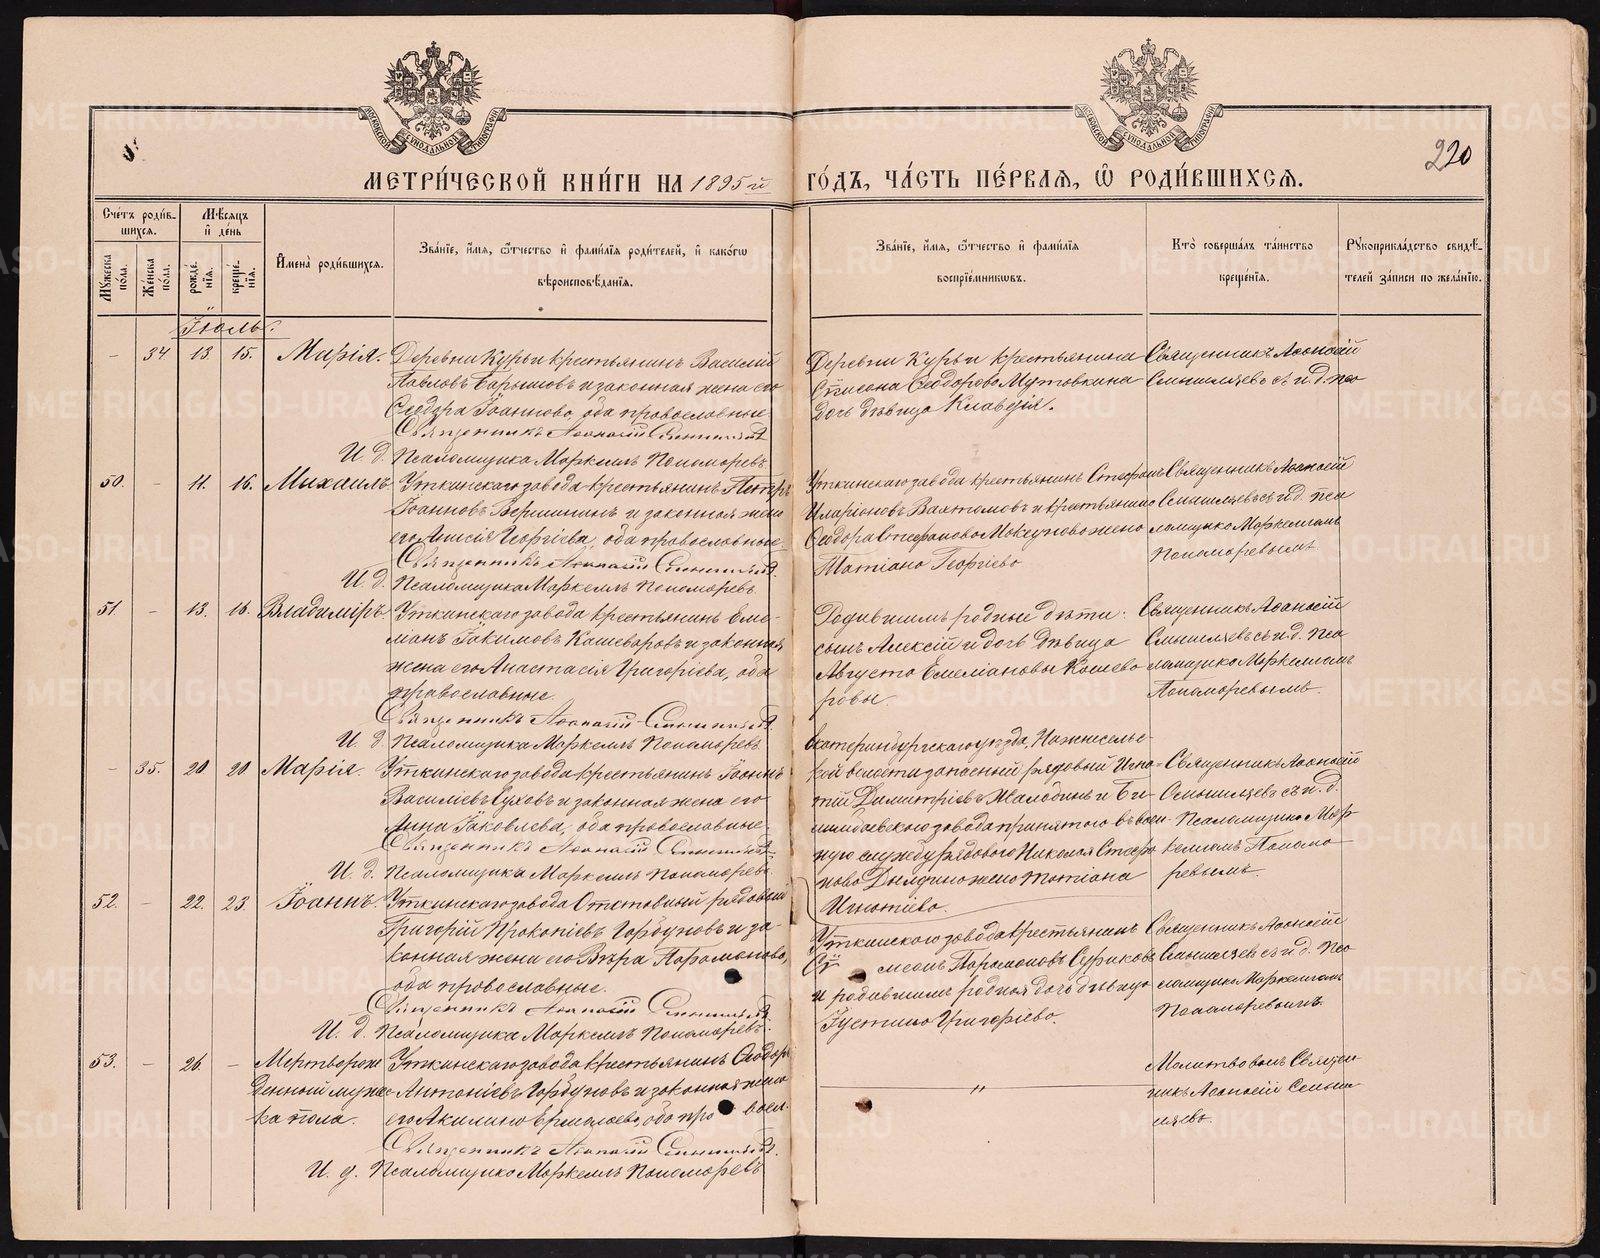 МЕТРИ́ЧЕСКОЙ КНИ́ГИ НА 1895й ГО́ДЪ, ЧА́СТЬ ПЕ́РВАЯ, Ѽ РОДИ́ВШИХСЯ.
220
Сче́тъ роди́в-
шихся.
Мѣ́сяцъ
и де́нь
Мꙋ́жеска
по́ла.
Же́нска
по́ла.
рожде́-
нія.
креще́-
нія.
Имена̀ роди́вшихся.
Зва́ніе, и́мя, ѻ́тчество и фами́лія роди́телей, и како́гѡ
вѣроисповѣ́данія.
Зва́ніе, и́мя, ѻ́тчество и фами́лія
воспріе́мниковъ.
Кто̀ соверша́лъ та́инство
креще́нія.
Рꙋкоприкла́дство свидѣ́-
телей за́писи по жела́нію.
Іюль.
- 34 13 15. Марія.
Деревни Курьи крестьянинъ Василій
Павловъ Барышовъ и законная жена его
Ѳеодора Іоаннова, оба православные
Священникъ Аѳанасій
И. д. Псаломщика Маркеллъ Пономаревъ.
Деревни Курьи крестьянина
Ѳеодорова Мутовкина
дочь дѣвица Клавдія.
Священникъ Аѳанасій
и. д. пса
50. - 11. 16. Михаилъ
Уткинскаго завода крестьянинъ Петръ
Іоанновъ Вершининъ и законная жена
его Анисія Георгіева, оба православные
Священникъ Аѳанасій
И. д. Псаломщика Маркеллъ Пономаревъ.
Уткинскаго завода крестьянинъ Стефанъ
Иларіоновъ Вахтомовъ и крестьянина
Ѳеодора Стефанова жена
Татіана Георгіева
Священникъ Аѳанасій
съ и. д. пса
ломщика Маркелломъ
Пономаревымъ
51 - 13. 16. Владиміръ.
Уткинскаго завода крестьянинъ Еме-
ліанъ Іакимовъ Кашеваровъ и законная
жена его Анастасія Григоріева, оба
православные.
Священникъ Аѳанасій
И. д. Псаломщика Маркеллъ Пономаревъ.
Родившимъ родные дѣти:
сынъ Алексій и дочь дѣвица
Августа Емеліановы Кашева
ровы.
Священникъ Аѳанасій
съ и. д. Пса
ломщика Маркелломъ
Пономаревымъ.
- 35. 20 20 Марія.
Уткинскаго завода крестьянинъ Іоаннъ
Василіевъ Суховъ и законная жена его
Анна Іаковлева, оба православные
Священникъ Аѳанасій
И. д. Псаломщика Маркеллъ Пономаревъ.
Екатеринбургскаго уѣзда,
кой волости запасный рядовый Игна-
тій Димитріевъ и Би-
лимбаевскаго завода принятого въ воен-
ную службу рядового Николая Стефа
нова жена Татіана
Игнатіева.
Священникъ Аѳанасій
съ и. д.
Псаломщика Мар
келломъ Понома
ревымъ.
52. - 22. 23. Іоаннъ.
Уткинскаго завода Отставный рядовый
Григорій Прокопіевъ Горбуновъ и за-
конная жена его Вѣра Парамонова,
оба православные.
Священникъ Аѳанасій
И. д. Псаломщика Маркеллъ Пономаревъ.
Уткинскаго завода крестьянинъ
Сѵмеонъ Парамоновъ Суриковъ
и родившимъ родная дочь дѣвица
Іустина Григоріева.
Священникъ Аѳанасій
съ и. д. Пса
ломщика Маркелломъ
Пономаревымъ.
53. - 26. - Мертворож
денный мужес
ка пола.
Уткинскаго завода крестьянинъ Ѳеодоръ
Антоніевъ Горбуновъ и законная жена
его Акилина Ермолаева, оба пра восл.
Священникъ Аѳанасій
И. д. Псаломщика Маркеллъ Пономаревъ
"
Молитвовалъ Священ
никъ Аѳанасій
METRIKI.GASO-URAL.RU